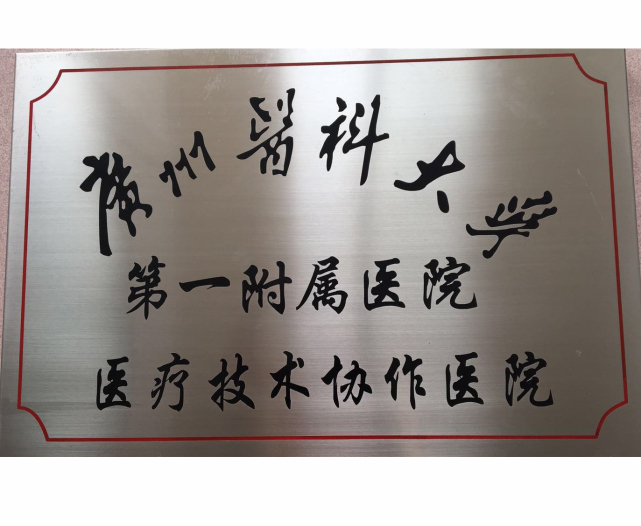 廣州醫科大学
第一附属医院
医疗技术协作医院